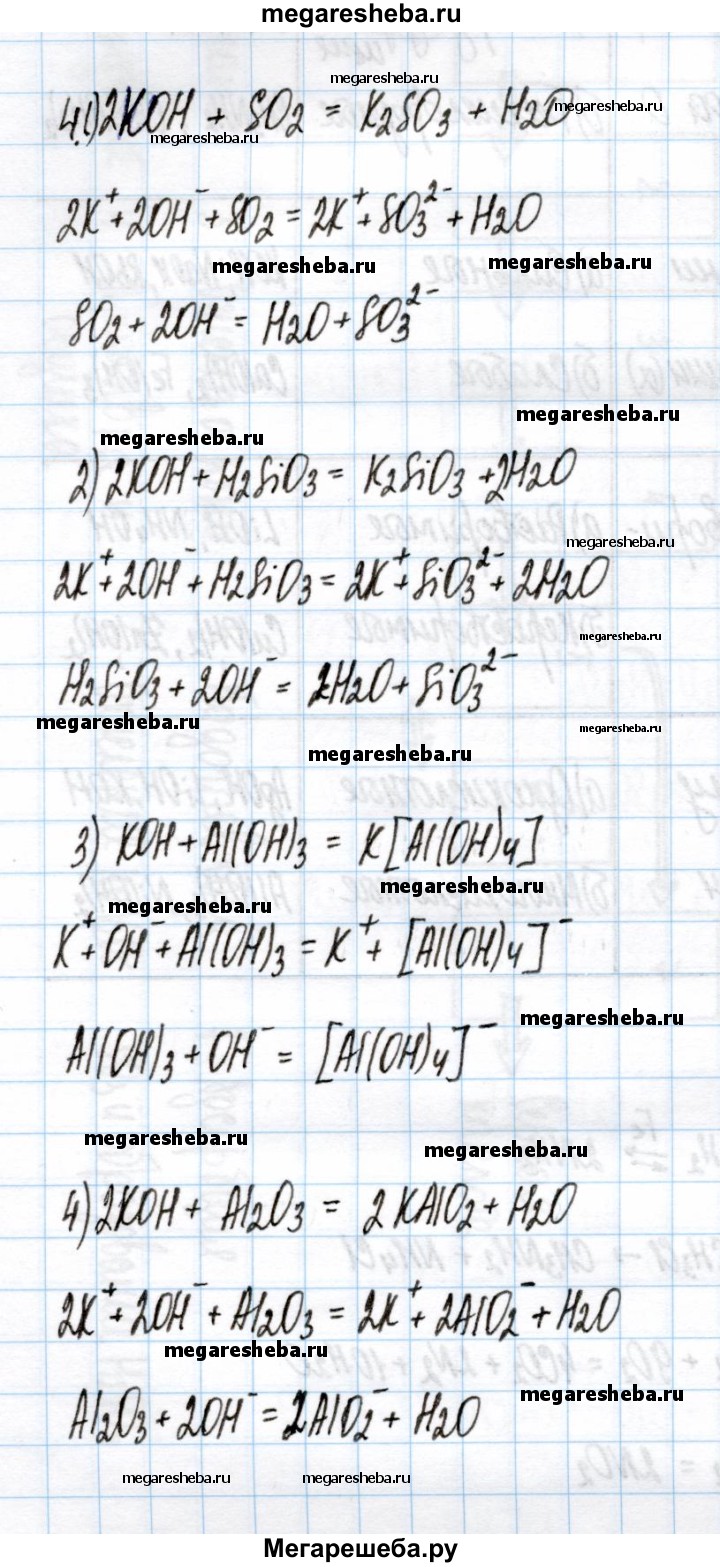 megaresheba.ru
megaresheba.ru
4.1) 2KOH + SO2 = K2SO3 + H2O
megaresheba.ru
megaresheba.ru
2K⁺ + 2OH⁻ + SO2 = 2K⁺ + SO3²⁻ + H2O
megaresheba.ru megaresheba.ru
SO2 + 2OH⁻ = H2O + SO3²⁻
megaresheba.ru
megaresheba.ru
2) 2KOH + H2SiO3 = K2SiO3 + 2H2O
megaresheba.ru
2K⁺ + 2OH⁻ + H2SiO3 = 2K⁺ + SiO3²⁻ + 2H2O
megaresheba.ru
H2SiO3 + 2OH⁻ = 2H2O + SiO3²⁻
megaresheba.ru megaresheba.ru
megaresheba.ru
3) KOH + Al(OH)3 = K[Al(OH)4]
megaresheba.ru
megaresheba.ru
K⁺ + OH⁻ + Al(OH)3 = K⁺ + [Al(OH)4]⁻
megaresheba.ru
Al(OH)3 + OH⁻ = [Al(OH)4]⁻
megaresheba.ru
megaresheba.ru
4) 2KOH + Al2O3 = 2KAlO2 + H2O
2K⁺ + 2OH⁻ + Al2O3 = 2K⁺ + 2AlO2⁻ + H2O
megaresheba.ru
megaresheba.ru
Al2O3 + 2OH⁻ = 2AlO2⁻ + H2O
megaresheba.ru megaresheba.ru
Мегарешеба.ру